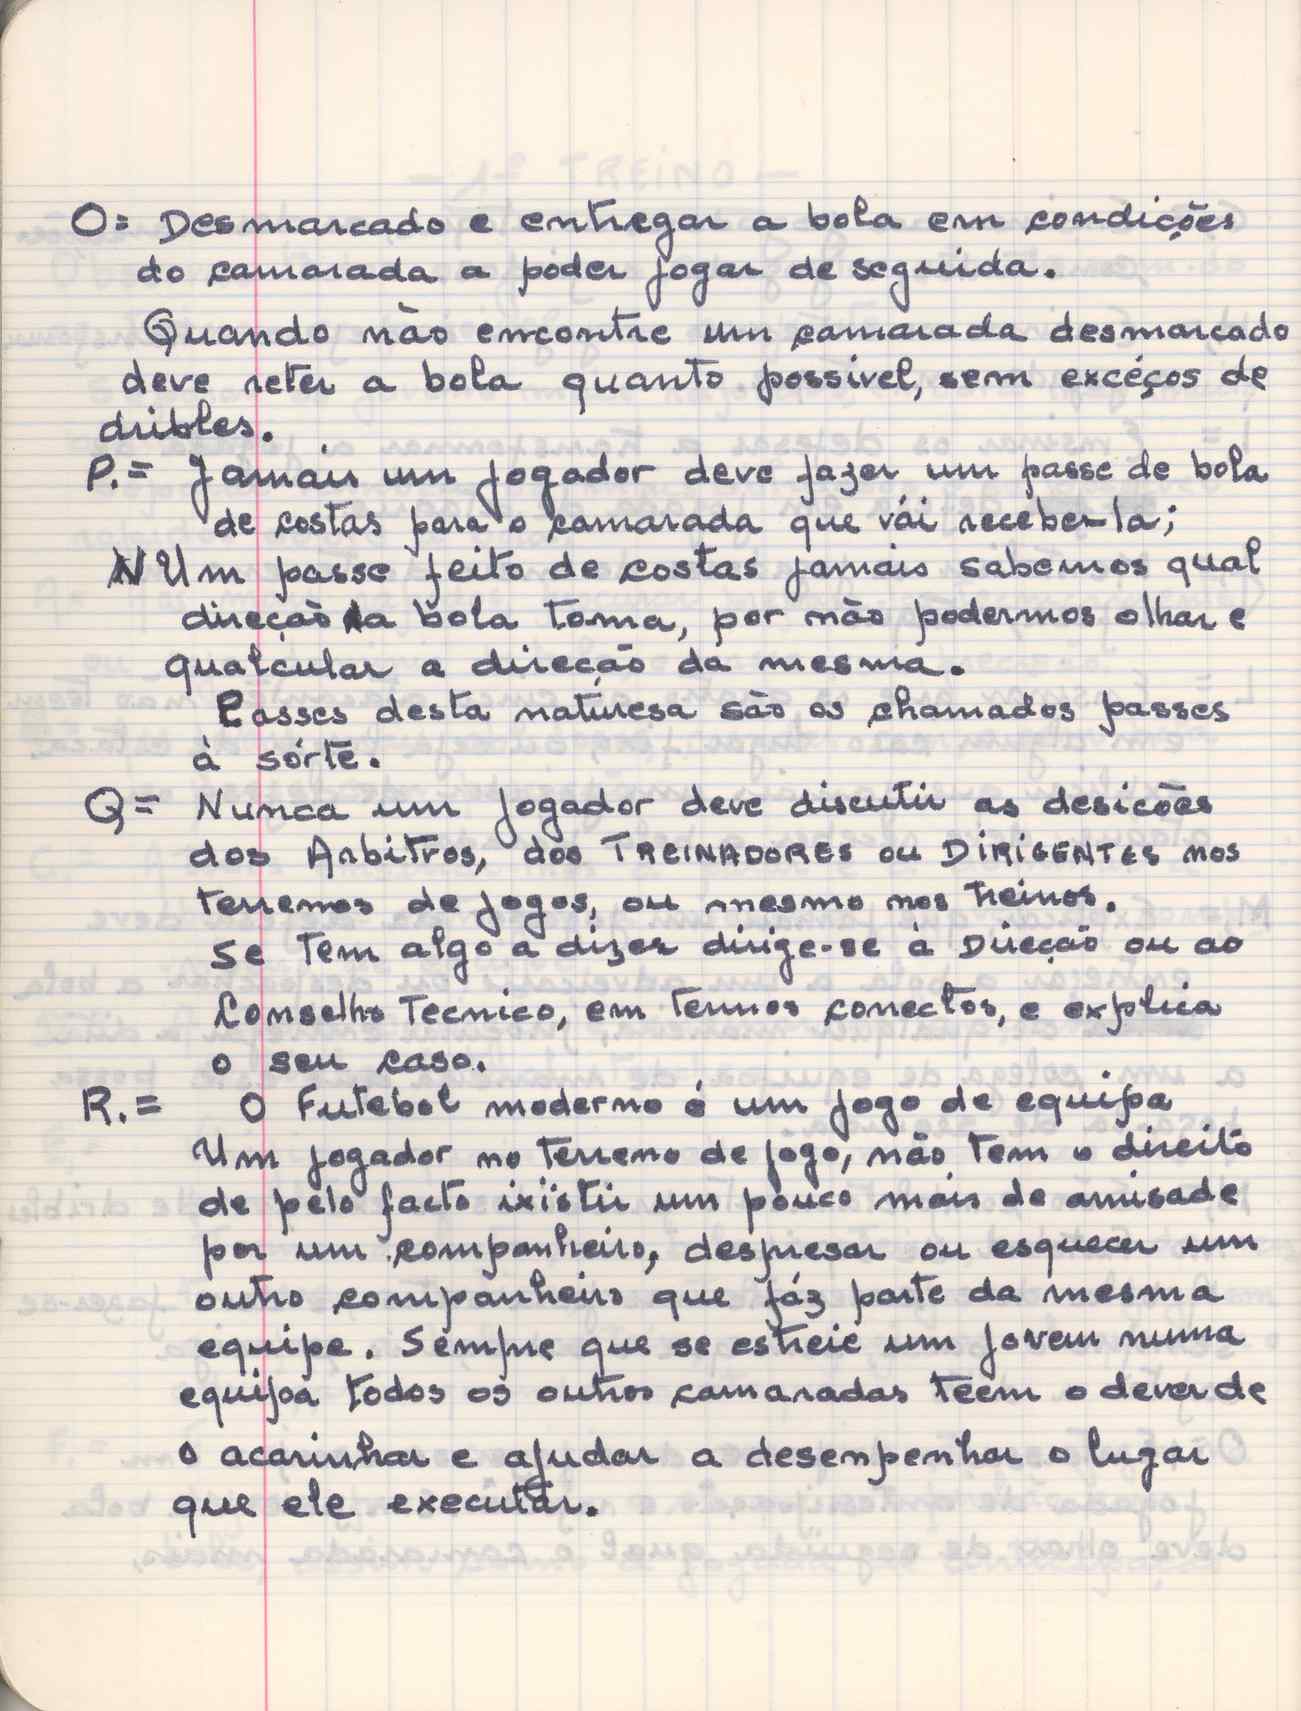 O= Desmarcado e entregar a bola em condições
do camarada a poder jogar de seguida.
Quando não encontre um camarada desmarcado
deve reter a bola quanto possivel, sem excéços de
dribles.
P.= Jamais um jogador deve fazer um passe de bola
de costas para o camarada que vái receber-la;
Um passe feito de costas jamais sabemos qual
direção a bola toma, por não podermos olhar e
qualcular a direcção da mesma.
Passes desta naturesa são os chamados passes
à sórte.
Q= Nunca um jogador deve discutir as desicões
dos Arbitros, dos TREINADORES ou DIRIGENTES nos
terrenos de jogos, ou mesmo nos treinos.
Se tem algo a dizer dirige-se à Direção ou ao
Conselho Tecnico, em termos correctos, e explica
o seu caso.
R.= O Futebol moderno é um jogo de equipa
Um jogador no terreno de jogo, não tem o direito
de pelo facto ixistir um pouco mais de amisade
por um companheiro, despresar ou esquecer um
outro companheiro que fáz parte da mesma
equipe. Sempre que se estreie um jovem numa
equipa todos os outros camaradas teem o dever de
o acarinhar e ajudar a desenpenhar o lugar
que ele executar.